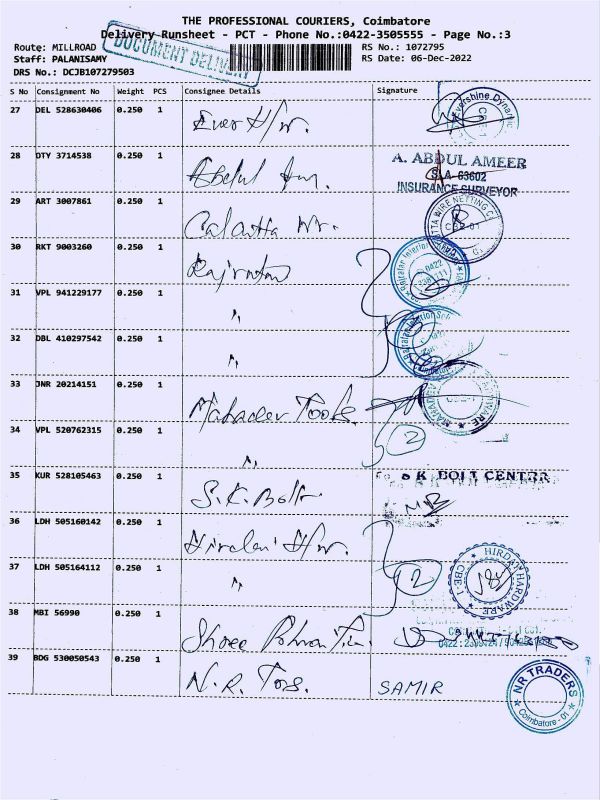 THE PROFESSIONAL COURIERS, Coimbatore
Delivery Runsheet - PCT - Phone No.:0422-3505555 - Page No.:3
Route: MILLROAD
RS No.: 1072795
Staff: PALANISAMY
RS Date: 06-Dec-2022
DRS No.: DCJB107279503
DOCUMENT DELIVERY
S No Consignment No Weight PCS Consignee Details Signature
27 DEL 528630406 0.250 1 Ever H/w. Evershine Dynamic
28 DTY 3714538 0.250 1 Abdul Am. A. ABDUL AMEER
SLA-63602
INSURANCE SURVEYOR
29 ART 3007861 0.250 1 Calcutta Wr. WIRE NETTING
30 RKT 9003260 0.250 1 Rajratan 0422
31 VPL 941229177 0.250 1 "
32 DBL 410297542 0.250 1 "
33 JNR 20214151 0.250 1 Mahadev Tools. HARDWARE
34 VPL 520762315 0.250 1 " 2
35 KUR 528105463 0.250 1 S.K. Bolt K BOLT CENTRE
36 LDH 505160142 0.250 1 Hirdai H/w.
37 LDH 505164112 0.250 1 " 2 HIRDAI HARDWARE CBE-1
38 MBI 56990 0.250 1 Shree
39 BDG 530050543 0.250 1 N.R. Trs. SAMIR NR TRADERS Coimbatore - 01